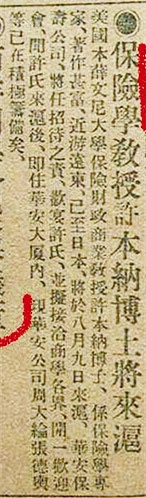 保險學教授許本納博士將來滬
美國本薛文尼大學保險財政商業教授許本納博士、係保險學專
家著作甚富、近游遠東、已至日本、將於八月九日來滬、華安保
壽公司、將任招待之責、歡宴許氏、並擬接洽商學各界、開一歡迎
會、聞許氏來滬後、即任華安大厦內、現華安公司周大綸張德輿
等已在積極籌備矣、